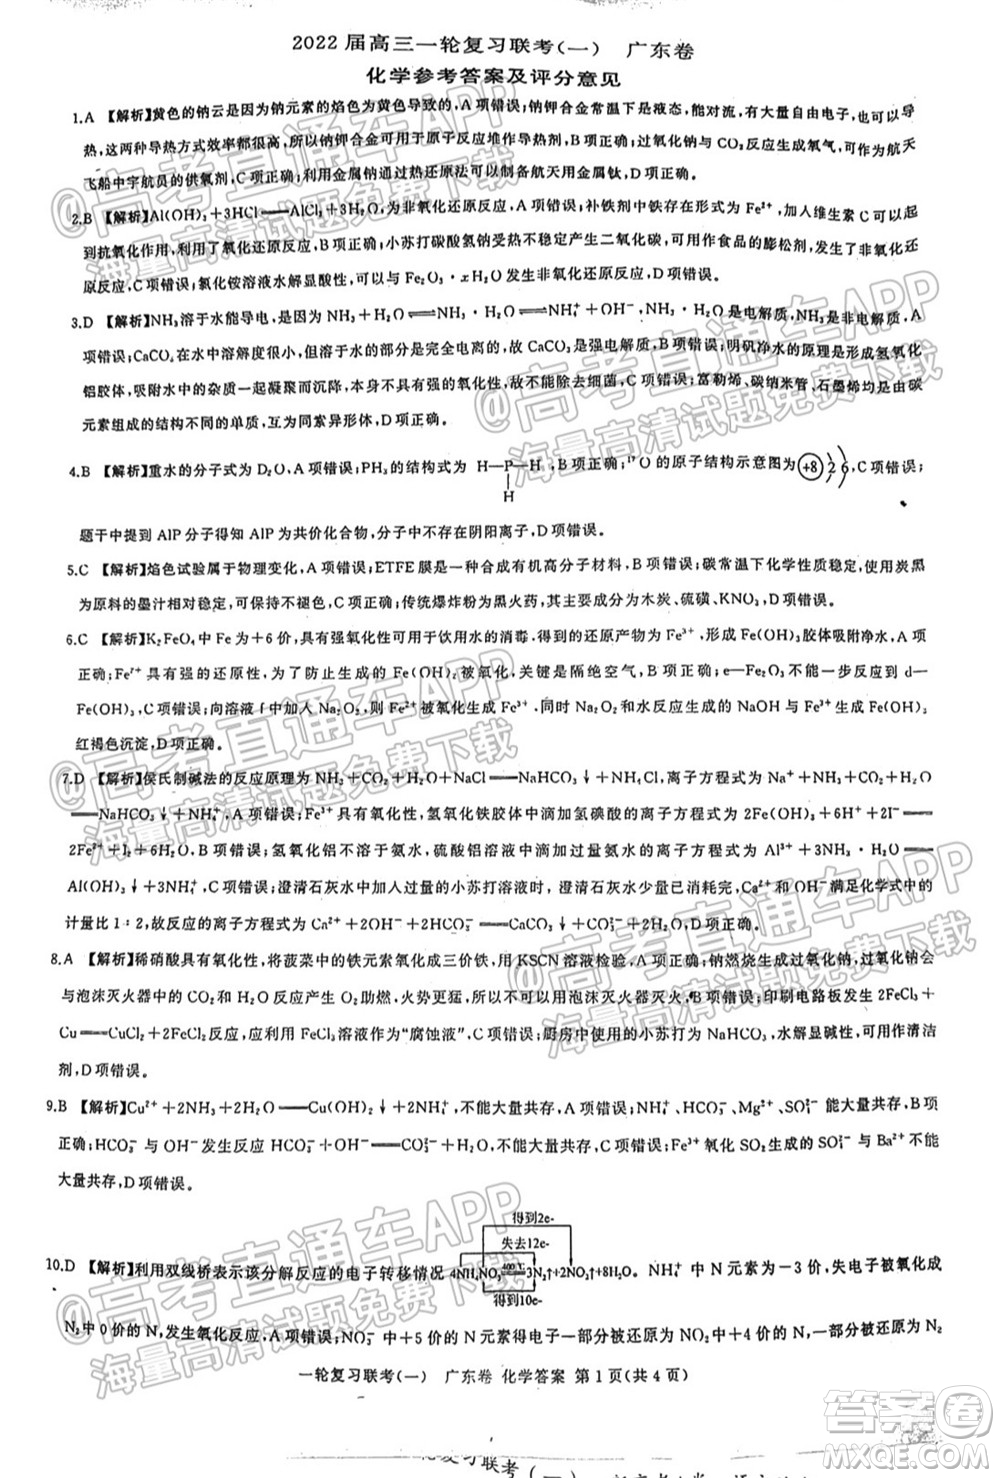 2022届高三一轮复习联考(一) 广东卷
化学参考答案及评分意见
1.A 【解析】黄色的钠云是因为钠元素的焰色为黄色导致的,A项错误;钠钾合金常温下是液态,能对流,有大量自由电子,能导
热,这两种导热方式效率都很高,所以钠钾合金可用于原子反应堆作导热剂,B项正确;过氧化钠与CO₂反应生成氧气,可作航天
飞船中宇航员的供氧剂,C项正确;利用金属钠通过热还原法可以制备航天用金属钛,D项正确。
2.B 【解析】Al(OH)₃+3HCl══AlCl₃+3H₂O,为非氧化还原反应,A项错误;补铁剂中铁存在形式为Fe²⁺,加入维生素C可以起
到抗氧化作用,利用了氧化还原反应,B项正确;小苏打碳酸氢钠受热不稳定产生二氧化碳,故做食品的膨松剂,发生了非氧化还原
反应,C项错误;氯化铵溶液水解显酸性,可以与Fe₂O₃·xH₂O发生非氧化还原反应,D项错误。
3.D 【解析】NH₃溶于水能导电,是因为NH₃+H₂O⇌NH₃·H₂O⇌NH₄⁺+OH⁻,NH₃·H₂O是电解质,NH₃是非电解质,A
项错误;CaCO₃在水中溶解度很小,但溶于水的部分是完全电离的,故CaCO₃是强电解质,B项错误;明矾净水的原理是形成氢氧化
铝胶体,吸附水中的杂质一起凝聚而沉降,本身不具有强的氧化性,故不能除去细菌,C项错误;富勒烯、碳纳米管、石墨烯均是由碳
元素组成的结构不同的单质,互为同素异形体,D项正确。
4.B 【解析】重水的分子式为D₂O,A项错误;PH₃的结构式为 H—P—H ,B项正确;¹⁷O的原子结构示意图为 +8 2 6 ,C项错误;
H
题干中提到AlP分子得知AlP为共价化合物,分子中不存在阴阳离子,D项错误。
5.C 【解析】焰色试验属于物理变化,A项错误;ETFE膜是一种合成有机高分子材料,B项错误;碳常温下化学性质稳定,使用炭黑
为原料的墨汁相对稳定,可使书画保存时间长久不褪色,C项正确;传统爆炸粉为黑火药,其成分为木炭、硫磺、KNO₃,D项错误。
6.C 【解析】K₂FeO₄中Fe为+6价,具有强氧化性可用于饮用水的消毒,得到的还原产物为Fe³⁺,形成Fe(OH)₃胶体吸附净水,A
项正确;Fe²⁺具有强的还原性,为了防止生成的Fe(OH)₂被氧化,关键是隔绝空气,B项正确;e—Fe₂O₃不能一步反应到d—
Fe(OH)₃,C项错误;向溶液f中加入Na₂O₂,则Fe²⁺被氧化生成Fe³⁺,同时Na₂O₂和水反应生成的NaOH与Fe³⁺生成Fe(OH)₃
红褐色沉淀,D项正确。
7.D 【解析】侯氏制碱法的反应原理为NH₃+CO₂+H₂O+NaCl══NaHCO₃↓+NH₄Cl,离子方程式为Na⁺+NH₃+CO₂+H₂O
══NaHCO₃↓+NH₄⁺,A项错误;Fe³⁺具有氧化性,氢氧化铁胶体中滴加氢碘酸的离子方程式为2Fe(OH)₃+6H⁺+2I⁻══
2Fe²⁺+I₂+6H₂O,B项错误;氢氧化铝不溶于氨水,硫酸铝溶液中滴加过量氨水的离子方程式为Al³⁺+3NH₃·H₂O══
Al(OH)₃↓+3NH₄⁺,C项错误;澄清石灰水中加入过量的小苏打溶液,澄清石灰水都已消耗完,Ca²⁺和OH⁻满足化学式中的
计量比1:2,故反应的离子方程式为Ca²⁺+2OH⁻+2HCO₃⁻══CaCO₃↓+CO₃²⁻+2H₂O,D项正确。
8.A 【解析】稀硝酸具有氧化性,将菠菜中的铁元素氧化成三价铁,用KSCN溶液检验,A项正确;钠燃烧生成过氧化钠,过氧化钠会
与泡沫灭火器中的CO₂和H₂O反应产生O₂助燃,火势更猛,不可以用泡沫灭火器灭火,B项错误;印刷电路板发生2FeCl₃+
Cu══CuCl₂+2FeCl₂反应,应利用FeCl₃溶液作为“腐蚀液”,C项错误;厨房中使用的小苏打为NaHCO₃,水解显碱性,可用作清洁
剂,D项错误。
9.B 【解析】Cu²⁺+2NH₃+2H₂O══Cu(OH)₂↓+2NH₄⁺,不能大量共存,A项错误;K⁺、HCO₃⁻、Mg²⁺、SO₄²⁻能大量共存,B项
正确;HCO₃⁻与OH⁻发生反应HCO₃⁻+OH⁻══CO₃²⁻+H₂O,不能大量共存,C项错误;Fe³⁺氧化SO₂生成的SO₄²⁻与Ba²⁺不能
大量共存,D项错误。
得到2e-
失去12e-
10.D 【解析】利用双线桥表示该分解反应的电子转移情况4NH₄NO₃ 400℃ 3N₂↑+2NO₂↑+8H₂O。NH₄⁺中N元素为-3价,失电子被氧化成
得到10e-
N₂中0价的N,发生氧化反应,A项错误;NO₃⁻中+5价的N元素得电子一部分被还原为NO₂中+4价的N,一部分被还原为N₂
一轮复习联考(一) 广东卷 化学答案 第1页(共4页)
@高考直通车APP
海量高清试题免费下载
答案圈
MXQE.COM